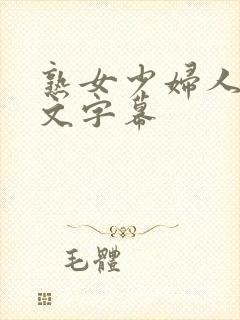 熟女少婦人
文字幕
毛體